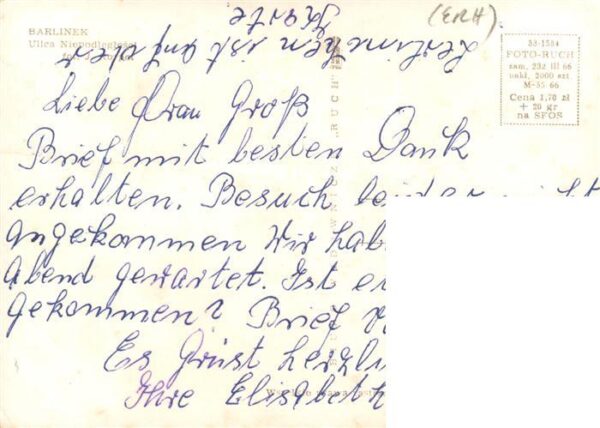 (ERH)
BARLINEK
Ulica Niepodległości
53-1584
FOTO-RUCH
zam. 232 III 66
nakł. 2000 szt
M-55 66
Cena 1,70 zł
+ 20 gr
na SFOS
ist auf der
Karte
"RUCH"
Liebe Frau Groß
Brief mit besten Dank
erhalten. Besuch
angekommen Wir hab
Abend gewartet. Ist
gekommen? Brief
Es Grüst herzli
Ihre Elisabeth